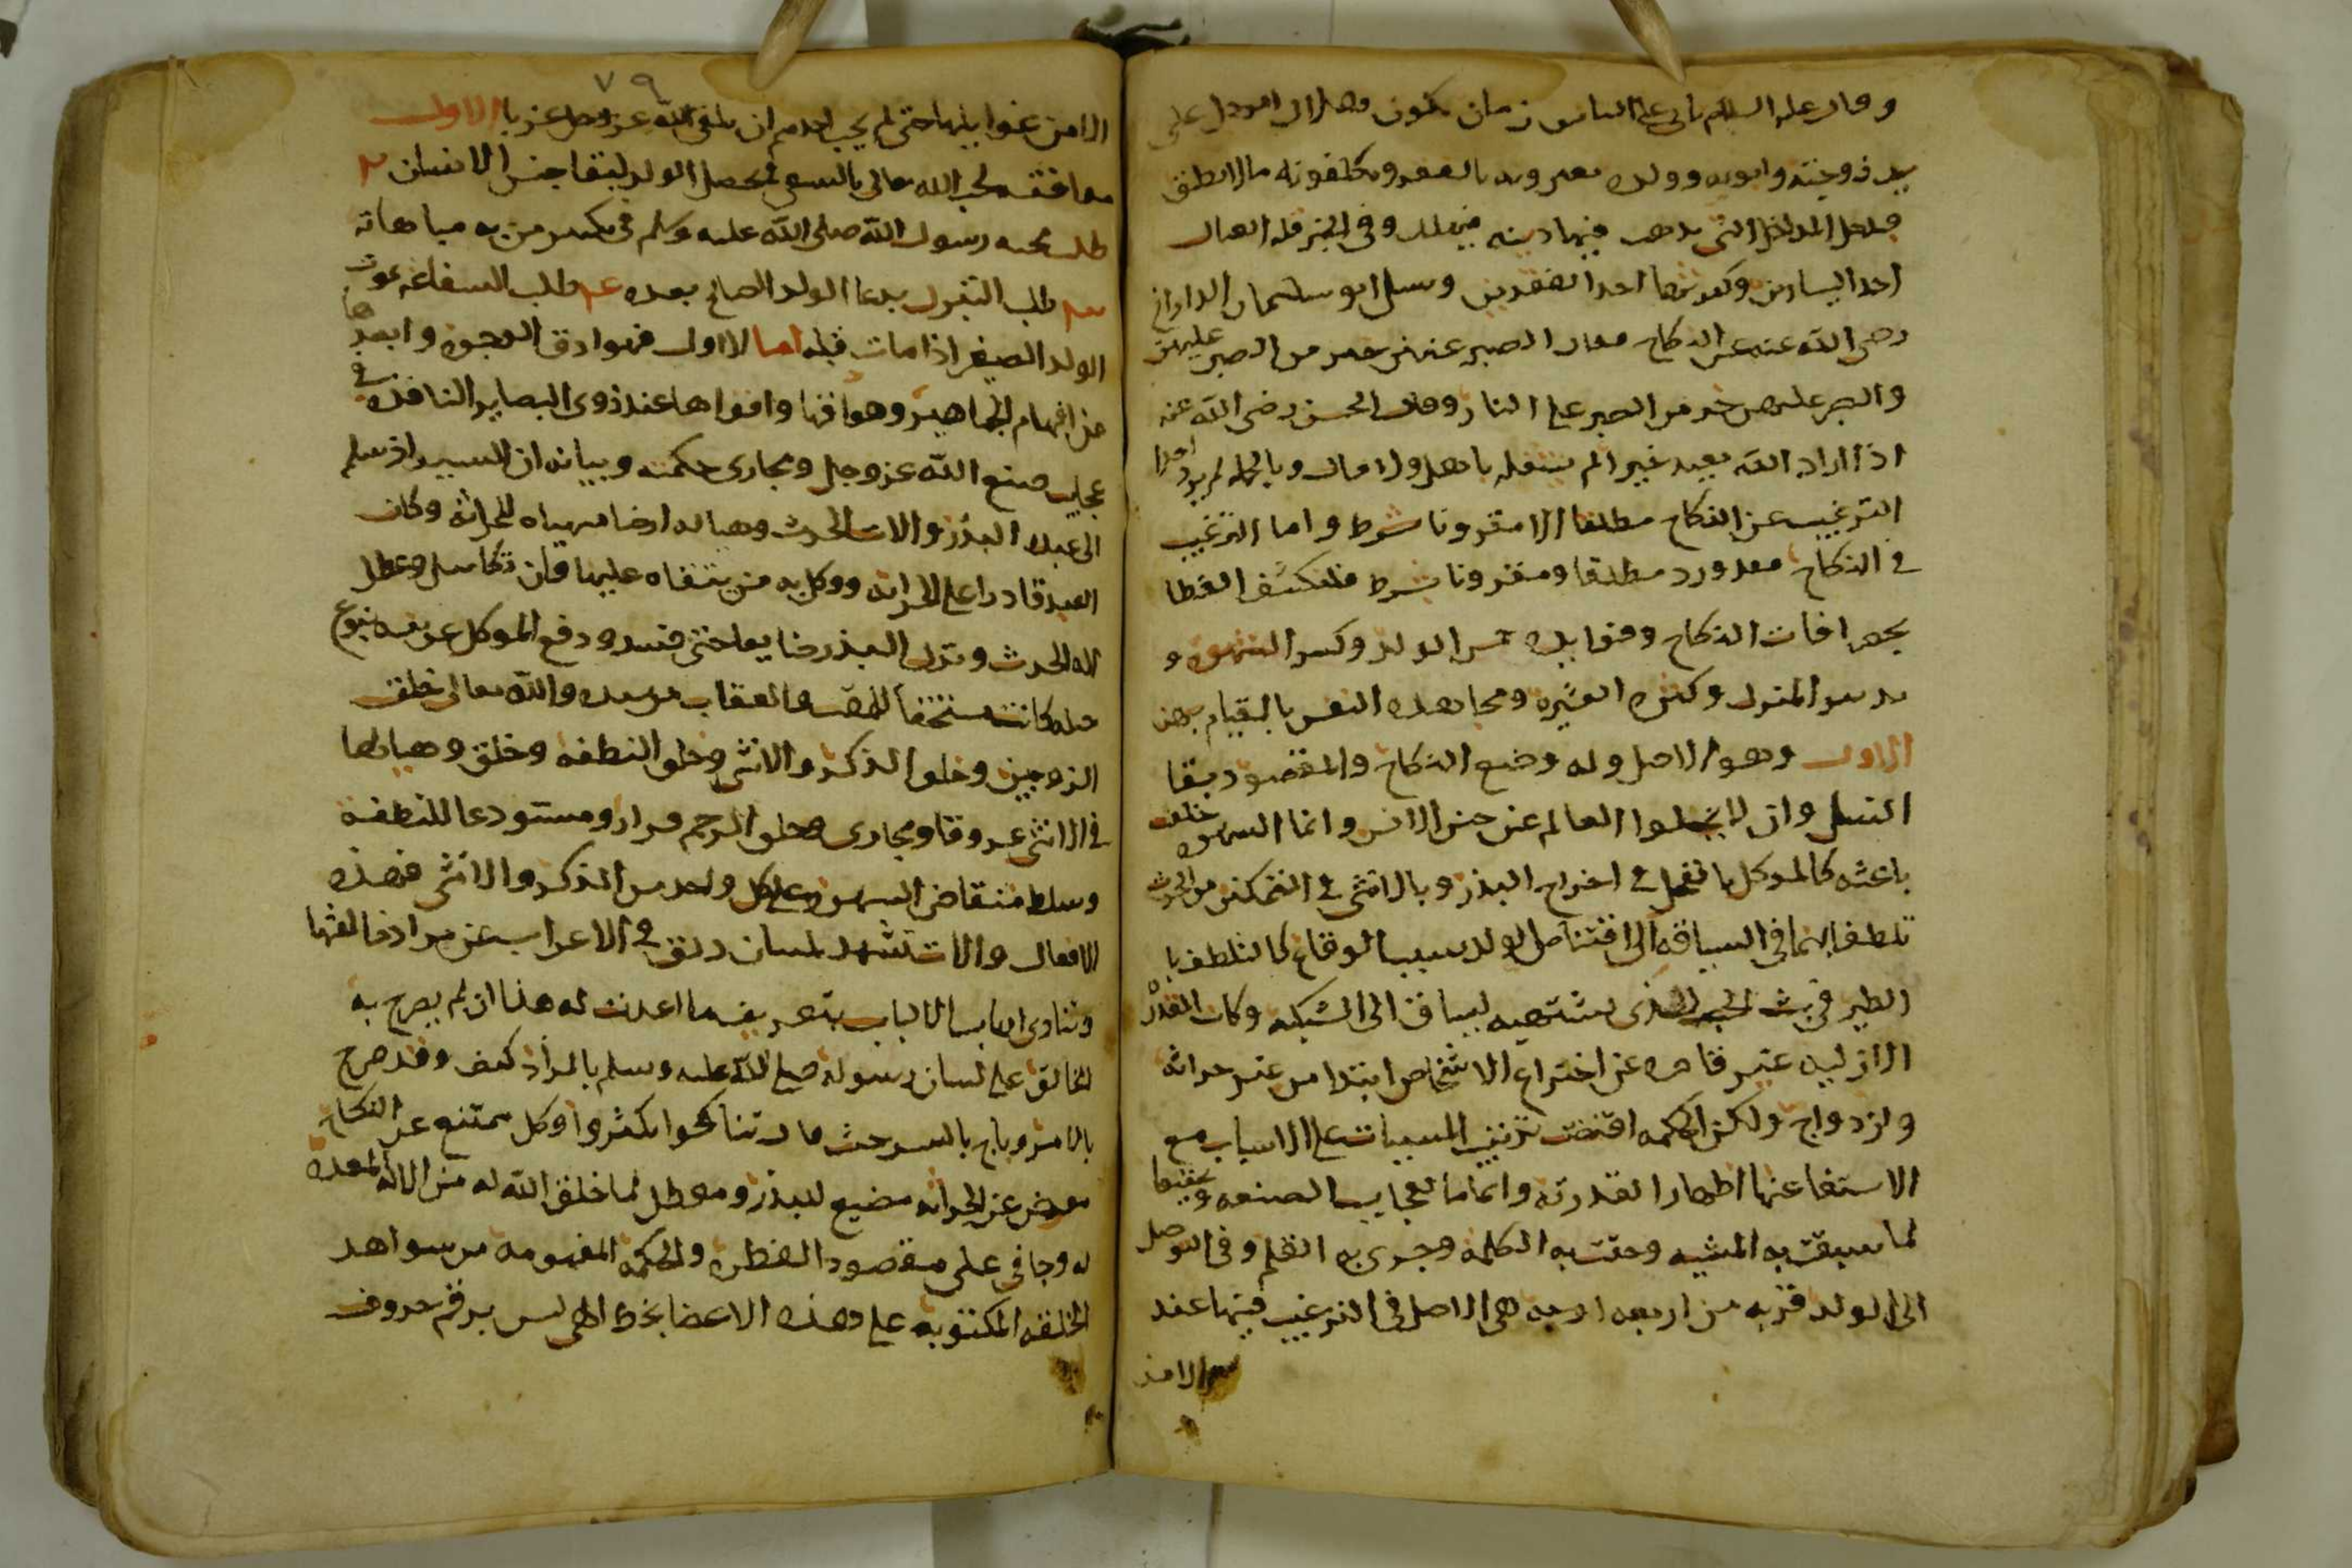 وقال عليه السلام ياتي على الناس زمان يكون هلاك الرجل على
يد زوجته وابويه وولده يعيرونه بالفقر ويكلفونه مالا يطيق
فيدخل المداخل التى يذهب فيها دينه فيهلك وفى الخبر قلة العيال
احد اليسارين وكثرتها احد الفقرين وسئل ابو سليمان الداراني
رضى الله عنه عن النكاح فقال الصبر عنهن خير من الصبر عليهن
والصبر عليهن خير من الصبر على النار وقال الحسن رضى الله عنه
اذا اراد الله بعبد خيرا لم يشغله باهل ولا مال وبالجملة لم يرد
الترغيب عن النكاح مطلقا الا مقرونا بشرط واما الترغيب
فى النكاح فقد ورد مطلقا ومقرونا بشرط فلنكشف الغطا
بحصر افات النكاح وفوايده خمس الولد وكسر الشهوة و
تدبير المنزل وكثرة العشيرة ومجاهدة النفس بالقيام بهن
الاول وهو الاصل وله وضع النكاح والمقصود بقا
النسل وان لا يخلوا العالم عن جنس الانس وانما الشهوة خلقت
باعثة كالموكل بالفحل فى اخراج البذر وبالانثى فى التمكين من الحرث
تلطفا بهما فى السياقة الى اقتناص الولد بسبب الوقاع كالتلطف با
الطير فى بث الحب الذى يشتهيه ليساق الى الشبكة وكانت القدرة
الازلية غير قاصرة عن اختراع الاشخاص ابتدا من غير حراثة
وازدواج ولكن الحكمة اقتضت ترتيب المسببات على الاسباب مع
الاستغنا عنها اظهارا لقدرته واتماما لعجايب الصنعة وتحقيقا
لما سبقت به المشية وحقت به الكلمة وجرى به القلم وفى التوصل
الى الولد قربة من اربعة اوجه هى الاصل فى الترغيب فيها عند
الامن
٧٩
الامن غوايلها حتى لم يحب احدهم ان يلقى الله عز وجل عزبا الاول
موافقة محبة الله تعالى بالسعى فى تحصيل الولد لبقا جنس الانسان ٢
طلب محبة رسول الله صلى الله عليه وسلم فى تكثير من به مباهاته
طلب التبرك بدعا الولد الصالح بعده طلب الشفاعة بموت
الولد الصغير اذا مات قبله اما الاول فهو ادق الوجوه وابعدها
عن افهام الجماهير وهو احقها واقواها عند ذوى البصاير النافذة فى
عجايب صنع الله عز وجل ومجارى حكمته وبيانه ان السيد اذ سلم
الى عبده البذر والات الحرث وهيا له ارضا مهياه للحراثة وكان
العبد قادرا على الحراثة ووكل به من يتقاضاه عليها فان تكاسل وعطل
الة الحرث وترك البذر ضايعا حتى فسد ودفع الموكل عن نفسه بنوع
حيلة كان مستحقا للمقت والعقاب من سيده والله تعالى خلق
الزوجين وخلق الذكر والانثى وخلق النطفة وخلق وهيا لها
فى الانثى عروقا ومجارى وخلق الرحم قرارا ومستودعا للنطفة
وسلط متقاضى الشهوة على كل واحد من الذكر والانثى فهذه
الافعال والالات تشهد بلسان ذلق فى الاعراب عن مراد خالقها
وتنادى ارباب الالباب بتعريف ما اعدت له هذا ان لم يصرح به
الخالق على لسان رسوله صلى الله عليه وسلم بالمراد كيف وقد صرح
بالامر وباح بالسر حيث قال تناكحوا تكثروا وكل ممتنع عن النكاح
معرض عن الحراثة مضيع للبذر ومعطل لما خلق الله له من الالة المعدة
له وجافى على مقصود الفطرة والحكمة المفهومة من شواهد
الخلقة المكتوبة على هذه الاعضا بخط الهى ليس برقم حروف